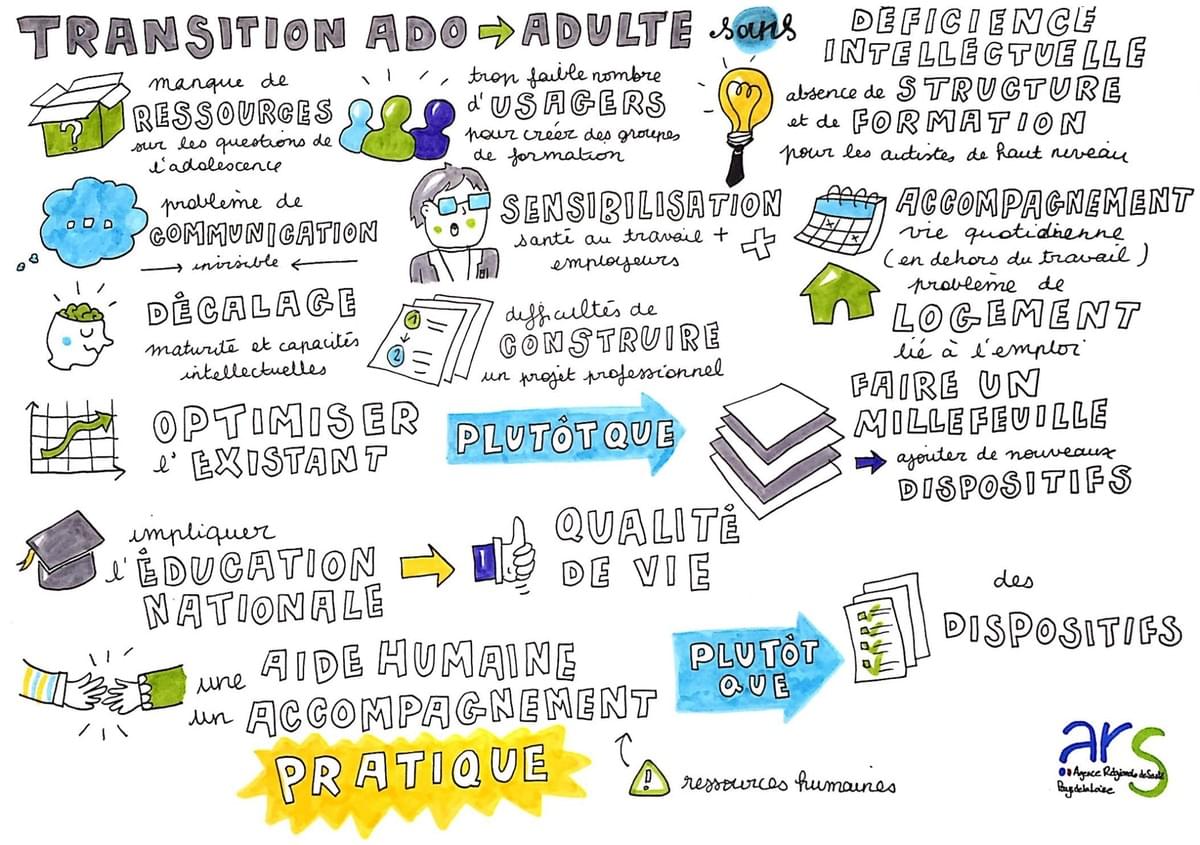 TRANSITION ADO → ADULTE sans
DÉFICIENCE
INTELLECTUELLE
manque de
RESSOURCES
sur les questions de
l'adolescence
?
trop faible nombre
d'USAGERS
pour créer des groupes
de formation
absence de STRUCTURE
et de FORMATION
pour les autistes de haut niveau
problème de
COMMUNICATION
→ invisible ←
SENSIBILISATION
santé au travail +
employeurs
ACCOMPAGNEMENT
vie quotidienne
(en dehors du travail)
problème de
LOGEMENT
lié à l'emploi
DÉCALAGE
maturité et capacités
intellectuelles
1
2
difficultés de
CONSTRUIRE
un projet professionnel
OPTIMISER
l'EXISTANT
PLUTÔT QUE
FAIRE UN
MILLEFEUILLE
→ ajouter de nouveaux
DISPOSITIFS
impliquer
l'ÉDUCATION
NATIONALE
QUALITÉ
DE VIE
une AIDE HUMAINE
un ACCOMPAGNEMENT
PRATIQUE
PLUTÔT
QUE
des
DISPOSITIFS
! ressources humaines
ars
Agence Régionale de Santé
Pays de la Loire